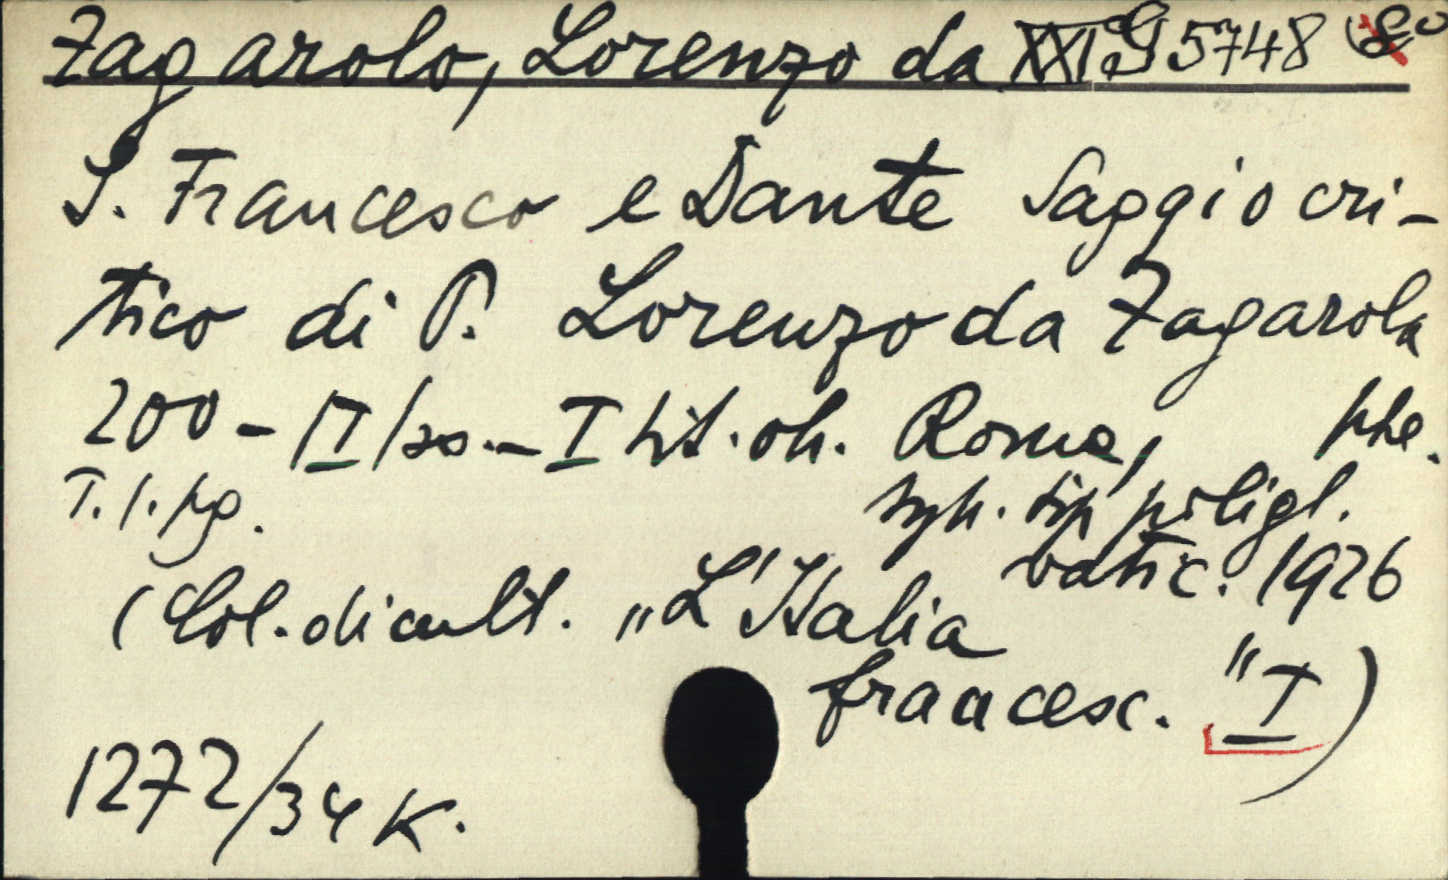 Zagarolo, Lorenzo da XXI G 5748
S. Francesco e Dante Saggio cri-
tico di P. Lorenzo da Zagarola
200 - II I tit. Roma,
T. 1. tip poligl.
vatic. 1926
(Col. di cult. „L'Italia
francesc." I)
1272/34 K.